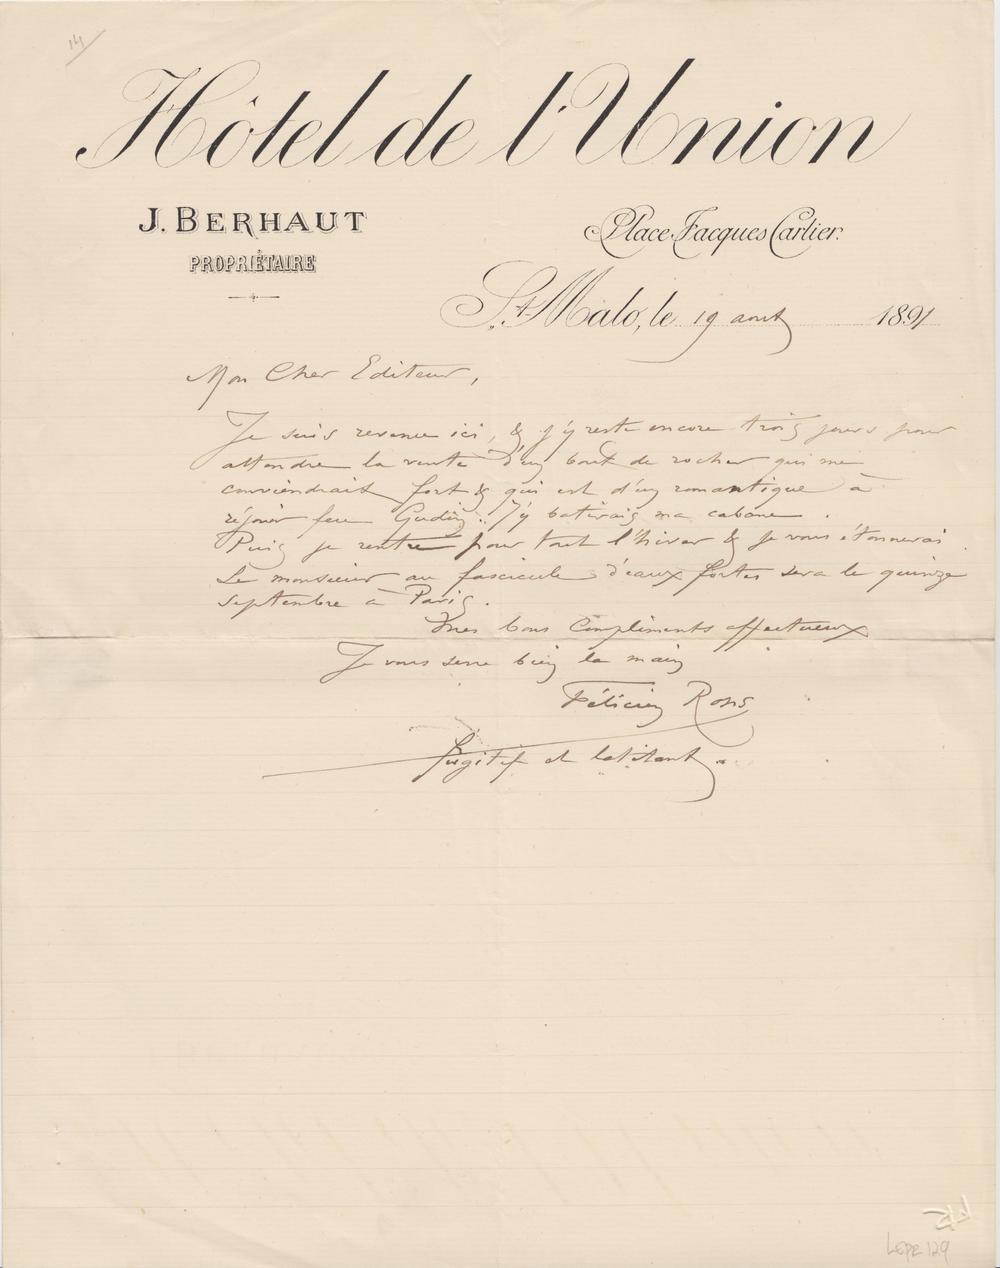 14
Hôtel de l'Union
J. BERHAUT
PROPRIÉTAIRE
Place Jacques Cartier.
St. Malo, le 19 aout 1891
Mon Cher Editeur,
Je suis revenu ici, & j'y reste encore trois jours pour
attendre la vente d'un bout de rocher qui me
conviendrait fort & qui est d'un romantique à
réjouir feu Gudin. J'y batirais ma cabane.
Puis je rentre pour tout l'hiver & je vous étonnerai.
Le monsieur au fascicule d'eaux fortes sera le quinze
septembre à Paris.
Mes bons Compliments affectueux
Je vous serre bien la main
Félicien Rops
fugitif et latitant.
LEPR 129